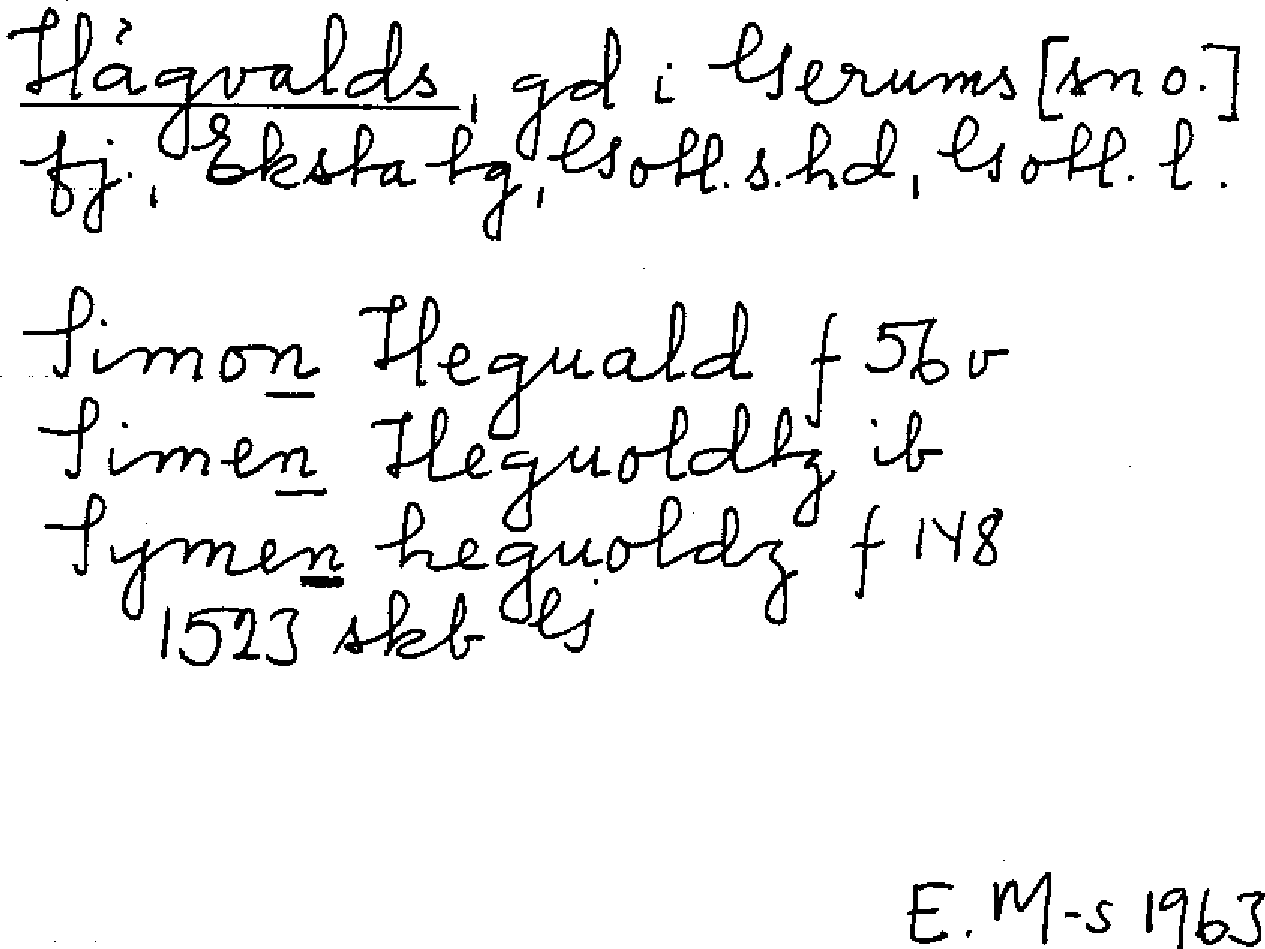 Hågvalds, gd i Gerums [sn o.]
fj., Eksta tg, Gotl. s. hd, Gotl. l.
Simon Heguald f 56 v
Simen Heguoldtz ib
Symen heguoldz f 148
1523 skb G
E. M-s 1963